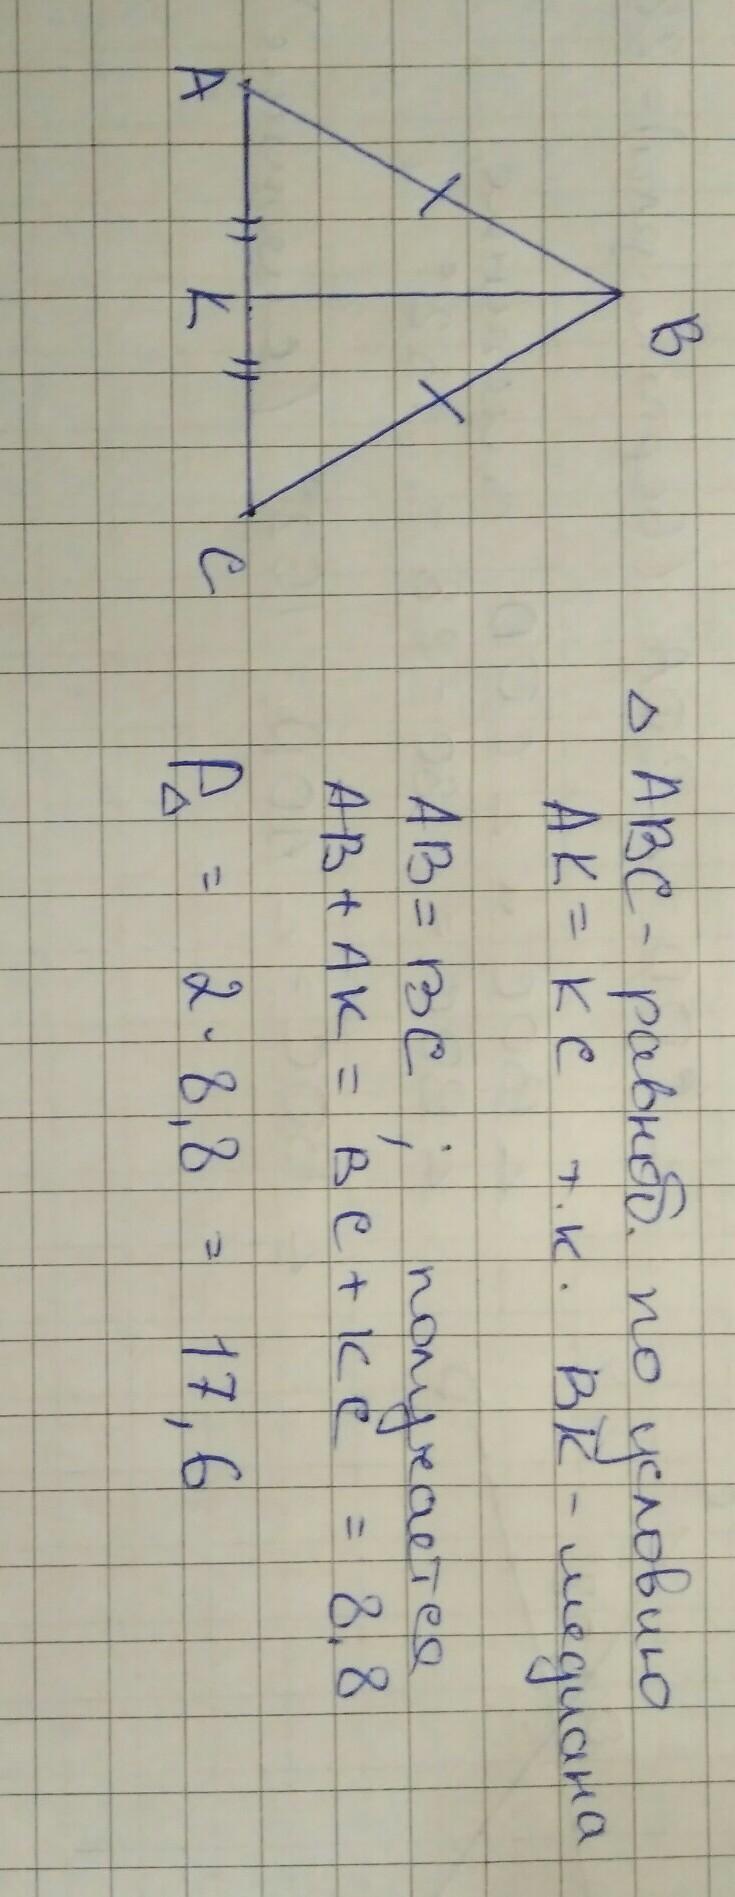 B
A
K
C
△ ABC - равноб. по условию
AK = KC т.к. BK - медиана
AB = BC ; получается
AB + AK = BC + KC = 8,8
P△ = 2 · 8,8 = 17,6